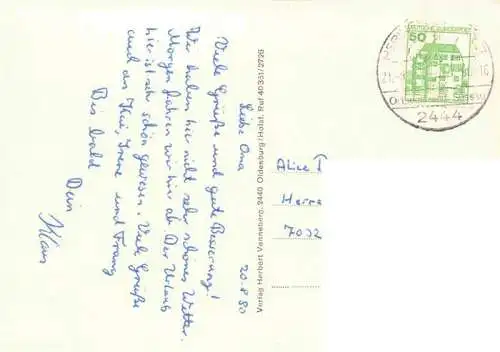 20-8.80
Liebe Oma
Viele Grüße und gute Besserung!
Wir haben hier nicht sehr schönes Wetter.
Morgen fahren wir hier ab. Der Urlaub
hier ist sehr schön gewesen. Viele Grüße
und an Kai, Irene und Franz
Bis bald
Dein
Klaus
Verlag Herbert 2440 Oldenburg/Holst. Ruf 40 331/2729
50
DEUTSCHE BUNDESPOST
2444
Alice
7032